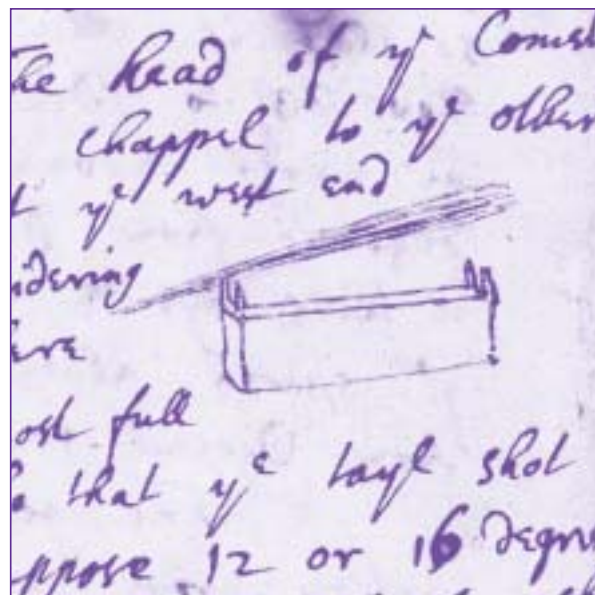 The head of yᵉ Comet
chappel to yᵉ other
t yᵉ west end
dering
ere
ost full
that yᵉ tayl shot
ppose 12 or 16 degre